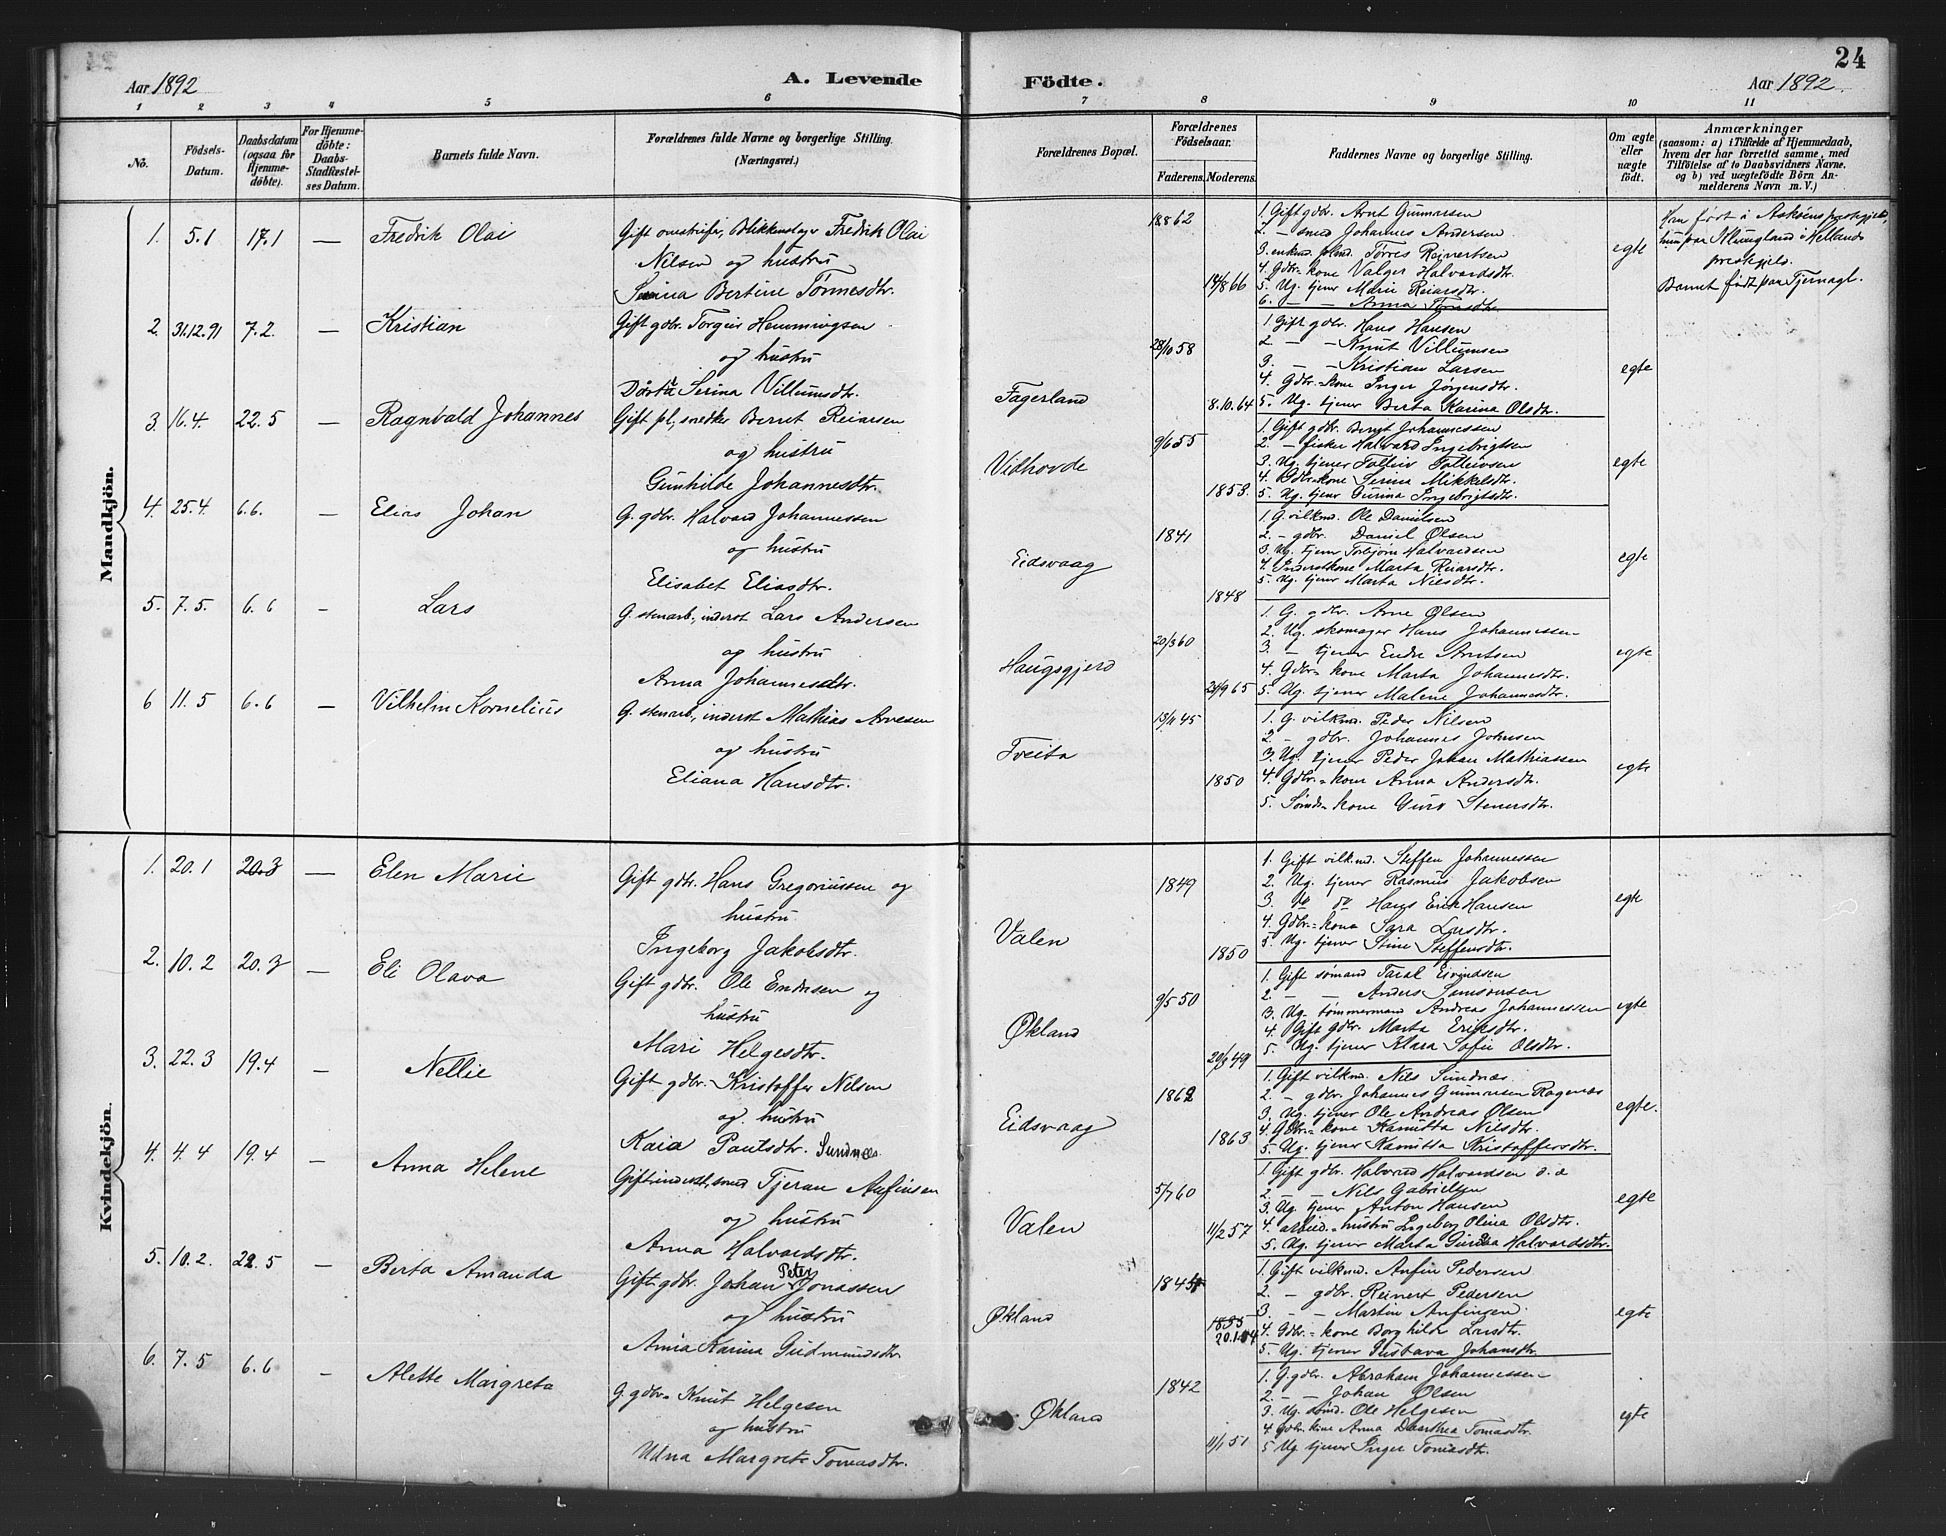 24
Aar 1892
A. Levende
Födte.
Aar 1892.
1 2 3 4 5 6 7 8 9 10 11
Nö.
Födsels-
Datum.
Daabsdatum
(ogsaa för
Hjemme-
döbte).
For Hjemme-
döbte:
Daabs-
Stadfæstel-
ses Datum.
Barnets fulde Navn.
Forældrenes fulde Navne og borgerlige Stilling.
(Næringsvei.)
Forældrenes Bopæl.
Forældrenes
Födselsaar.
Faderens. Moderens.
Faddernes Navne og borgerlige Stilling.
Om ægte
eller
uægte
födt.
Anmærkninger
(saasom: a) i Tilfælde af Hjemmedaab,
hvem der har forrettet samme, med
Tilföielse af to Daabsvidners Navne.
og b) ved uægtefödte Börn An-
melderens Navn m. V.)
Mandkjön.
1. 5.1 17.1 — Fredrik Olai
Gift omstreifer, Blikkenslager Fredrik Olai
Nilsen og hustru
Serina Bertine Tønnesdtr.
1862
14/8 66
1. Gift gdbr. Arnt Gunnarsen
2. — smed Johannes Andersen
3. enkmd. Torres Reinertsen
4. Gdbr.-kone Valger Halvardsdtr.
5. Ug. tjener Marie Reiarsdtr.
6. — — Anna Tomasdtr.
egte
Han født i Askøens prestegjeld,
hun paa
prestegjeld.
Barnet født paa Tjernagl.
2. 31.12.91 7.2. — Kristian
Gift gdbr. Torgeir Hemmingsen
og hustru
Dorta Serina Villumsdtr.
Fagerland
28/10 58
8.10.64
1. Gift gdbr. Hans Hansen
2. — — Knut Villumsen
3. — — Kristian Larsen
4. Gdbr.-kone Inger Jørgensdtr.
5. Ug. tjener Berta Karina Olsdtr.
egte
3. 16.4. 22.5 — Ragnvald Johannes
Gift pl, snedker Bernt Reiarsen
og hustru
Gunhilde Johannesdtr.
Vidhovde
9/6 55
1853.
1. Gift gdbr. Bernt Johannessen
2. — fisker Halvard Ingebrigtsen
3. Ug. tjener Tolleiv Tolleivsen
4. Gdbr.-kone Serina Mikkelsdtr.
5. Ug. tjener Gurina Ingebrigtsdtr.
egte
4. 25.4. 6.6. — Elias Johan
G. gdbr. Halvard Johannessen
og hustru
Elisabet Eliasdtr.
Eidsvaag
1841
1848
1. G. vilkmd. Ole Danielsen
2. — gdbr. Daniel Olsen
3. Ug. tjener Torbjørn Halvardsen
4. Inderstkone Marta Reiarsdtr.
5. Ug. tjener Marta Nilsdtr.
egte
5. 7.5. 6.6 — Lars
G. stenarb., inderst Lars Andersen
og hustru
Anna Johannesdtr.
Haugsgjerd
20/3 60
28/9 65
1. G. gdbr. Arne Olsen
2. Ug. skomager Hans Johannessen
3. — tjener Endre Arntsen
4. Gdbr.- kone Marta Johannesdtr.
5. Ug. tjener Malene Johannesdtr.
egte
6 11.5 6.6 — Vilhelm Kornelius
G. stenarb., inderst Mathias Arnesen
og hustru
Eliana Hansdtr.
Tveita
13/11 45
1850
1. G. vilkmd. Peder Nilsen
2. — gdbr. Johannes Johnsen
3. Ug. tjener Peder Johan Mathiassen
4. Gdbr.-kone Anna Andersdtr.
5. Sømds-kone Guro Stenersdtr.
egte
Kvindekjön.
1. 20.1 20.3 — Elen Marie
Gift gdbr. Hans Gregoriussen og
hustru
Ingeborg Jakobsdtr.
Valen
1849
1850
1. Gift vilkmd. Steffen Johannessen
2. Ug. tjener Rasmus Jakobsen
3. do do Hans Erik Hansen
4. Gdbr.-kone Sara Larsdtr.
5. Ug. tjener Stine Steffensdtr.
egte
2. 10.2 20.3 — Eli Olava
Gift gdbr. Ole Endresen og
hustru
Mari Helgesdtr.
Økland
9/5 50
20/9 49
1. Gift sømand Taral Eivindsen
2. — — Anders Simonsen
3. Ug. tømmermand Andreas Johannessen
4. Gift gdbr. Marta Eriksdtr.
5. Ug. tjener Klara Sofie Olsdtr.
egte
3. 22.3 19.4 — Nellie
Gift gdbr. Kristoffer Nilsen
og hustru
Kaia Paulsdtr. Sundnæs.
Eidsvaag
1862
1863
1. Gift vilkmd. Nils Sundnæs
2. — gdbr. Johannes Gunnarsen Ragenæs
3. Ug. tjener Ole Andreas Olsen
4. Gdbr.-kone Kanutta Nilsdtr.
5. Ug. tjener Kanutta Kristoffersdtr.
egte.
4. 4.4 19.4 — Anna Helene
Gift inderst, smed Tjeran Anfinsen
og hustru
Anna Halvardsdtr.
Valen
5/7 60
11/2 57
1. Gift gdbr. Halvard Halvardsen d. æ
2. — — Nils Gabrielsen
3. Ug. tjener Anton Hansen
4. arbeid.-hustru Ingeborg Olina Olsdtr.
5. Ug. tjener Marta Halvardsdtr.
egte
5. 10.2. 22.5 — Berta Amanda
Gift gdbr. Johan Peter Jonassen
og hustru
Anna Karina Gudmundsdtr.
Økland
1845
1855
20.1.54
1. Gift vilkmd. Anfin Pedersen
2. — gdbr. Reinert Pedersen
3. — — Martin Anfinsen
4. Gdbr.-kone Borghilde Larsdtr.
5. Ug. tjener Gustava Johansdtr.
egte
6. 7.5 6.6 — Alette Margreta
G. gdbr. Knut Helgesen
og hustru
Udna Margrete Tomasdtr.
Økland
1842
11/1 51
1. G. gdbr. Abraham Johannessen
2. — — Johan Olsen
3. Ug. sømd. Ole Helgesen
4. Gdbr. kone Anna Dorthea Tomasdtr.
5 Ug. tjener Inger Tomasdtr.
egte